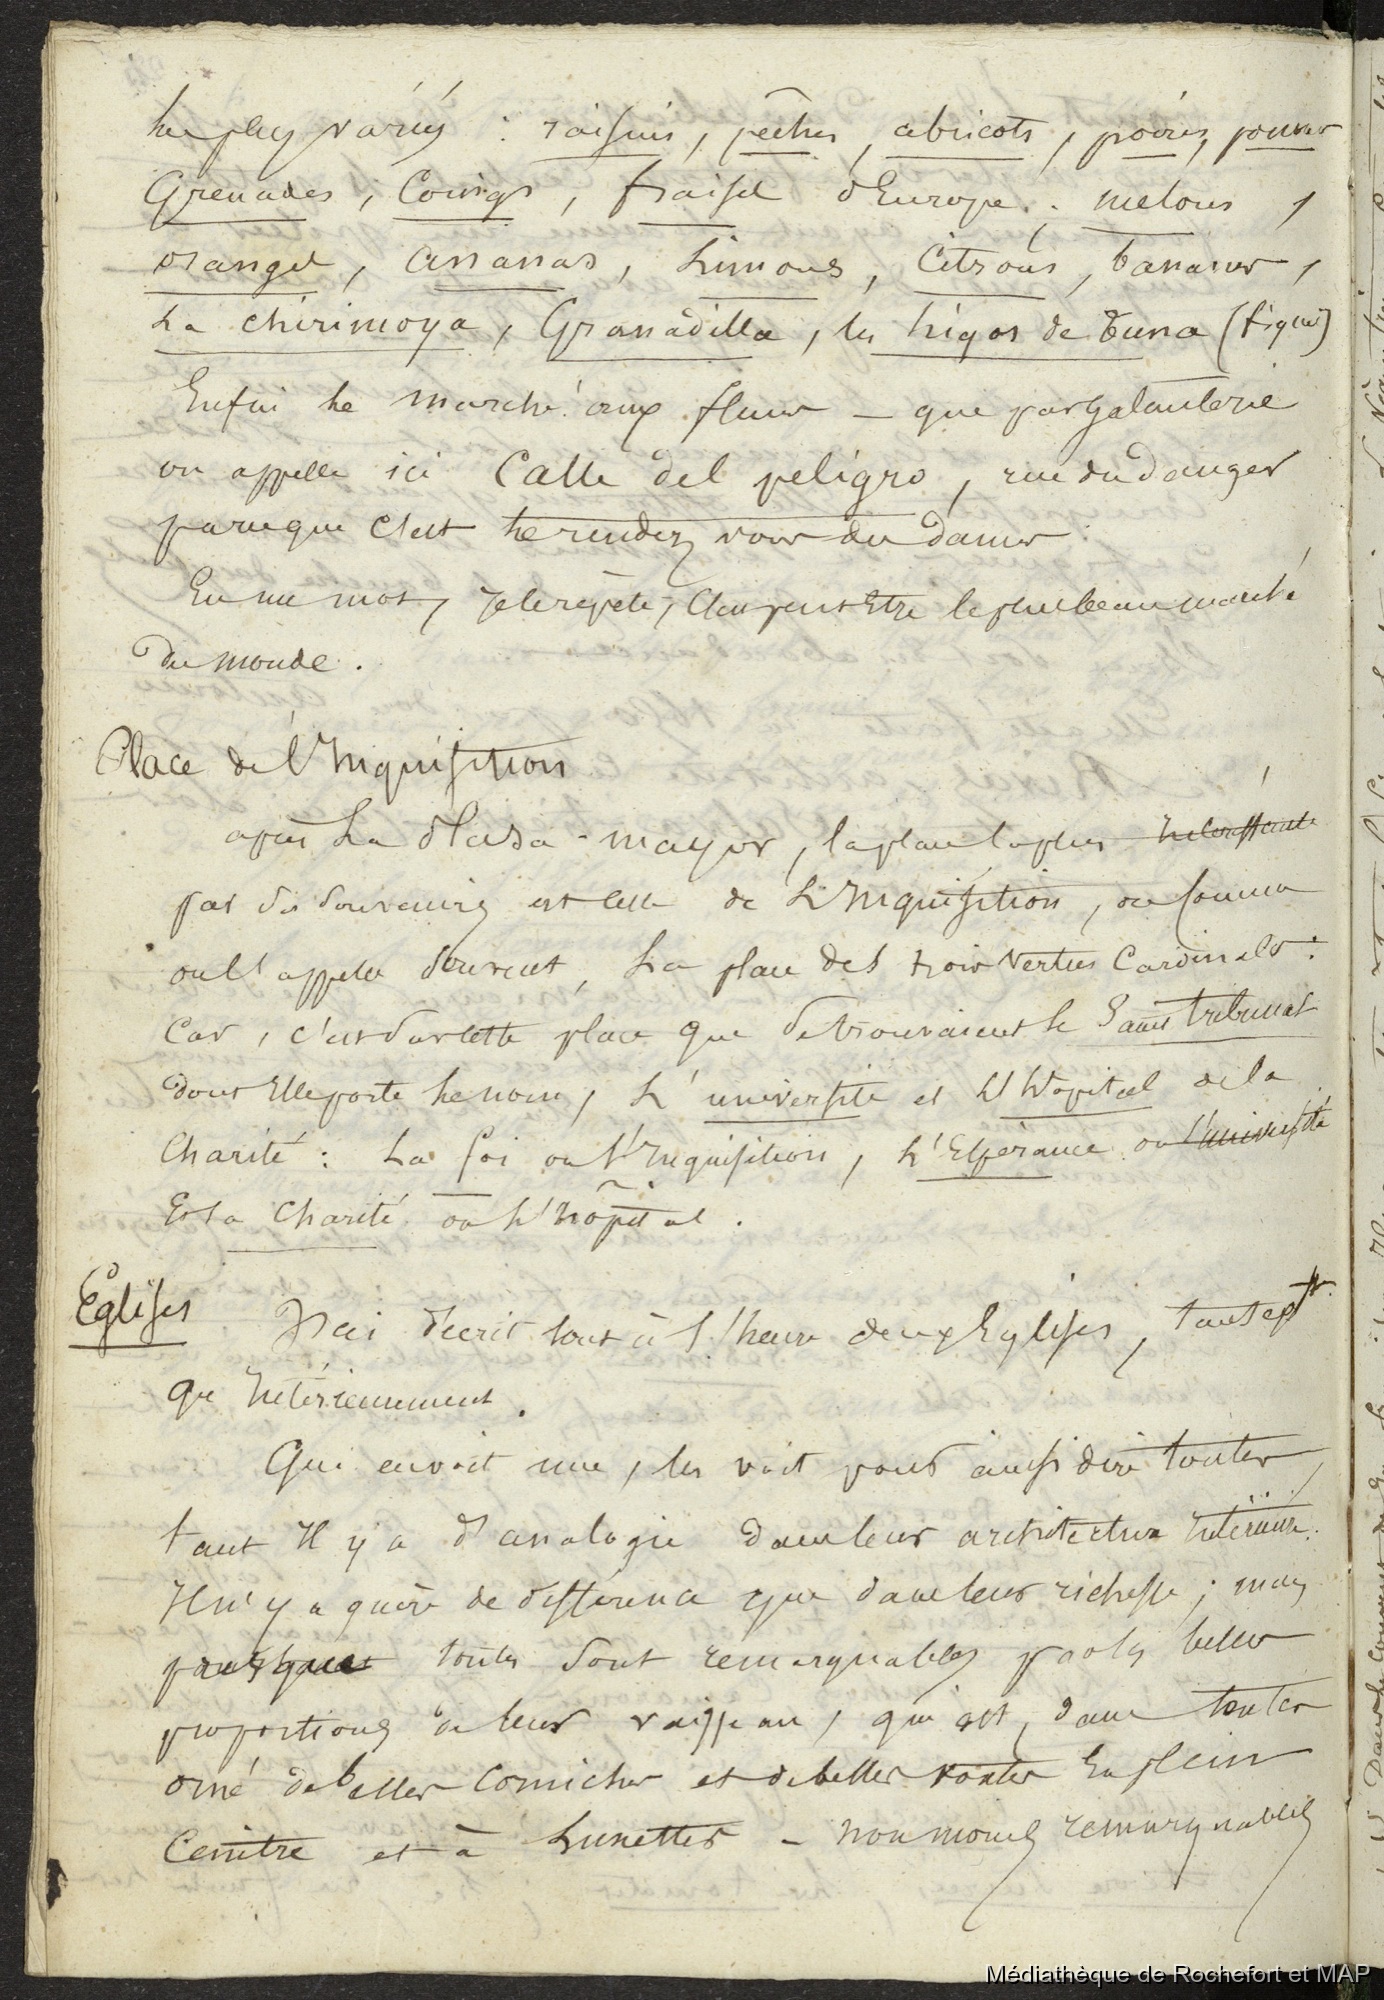 les plus variés : raisins, pêches, abricots, poires, pommes
Grenades, Coings, fraises d'Europe, melons,
oranges, ananas, Limons, Citrons, bananes,
La chirimoya, Granadilla, les higos de Tuna (figues)
Enfin le marché aux fleurs – que par galanterie
on appelle ici Calle del peligro, rue du danger
parceque c'est le rendez vous des dames.
En un mot, je le répète, c'en peut être le plus beau marché
du monde.
Place de l'Inquisition
après La Plasa-mayor, la place la plus intéressante
par ses souvenirs est celle de L'Inquisition, ou comme
on l'appelle souvent, La place des trois vertus Cardinales :
Car, c'est sur cette place que se trouvaient le Saint tribunal
dont Elle porte le nom, L'université et L'hopital de la
Charité : La foi ou l'Inquisition, L'Espérance ou l'université
Et la Charité ou L'hôpital.
Eglises
J'ai décrit tout à l'heure deux Eglises, tant extr
qu Intérieurement.
Qui en voit une, les voit pour ainsi dire toutes,
tant Il y a d'analogie dans leur architecture Intérieure.
Il n'y a guère de différence que dans leur richesse ; mais
presque toutes sont remarquables par les belles
proportions de leur vaisseau, qui est, dans toutes
orné de belles Corniches et de belles voutes En plein
Ceintre et à Lunettes – non moins remarquables
Médiathèque de Rochefort et MAP